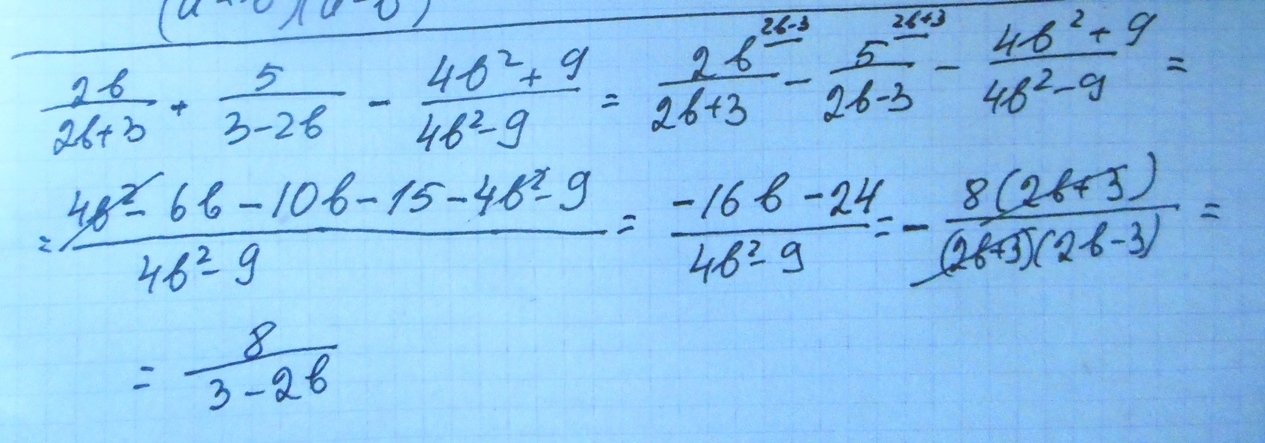 2b/2b+3 + 5/3-2b - 4b²+9/4b²-9 = 2b^2b-3/2b+3 - 5^2b+3/2b-3 - 4b²+9/4b²-9 =
= 4b²-6b-10b-15-4b²-9/4b²-9 = -16b-24/4b²-9 = - 8(2b+3)/(2b+3)(2b-3) =
= 8/3-2b